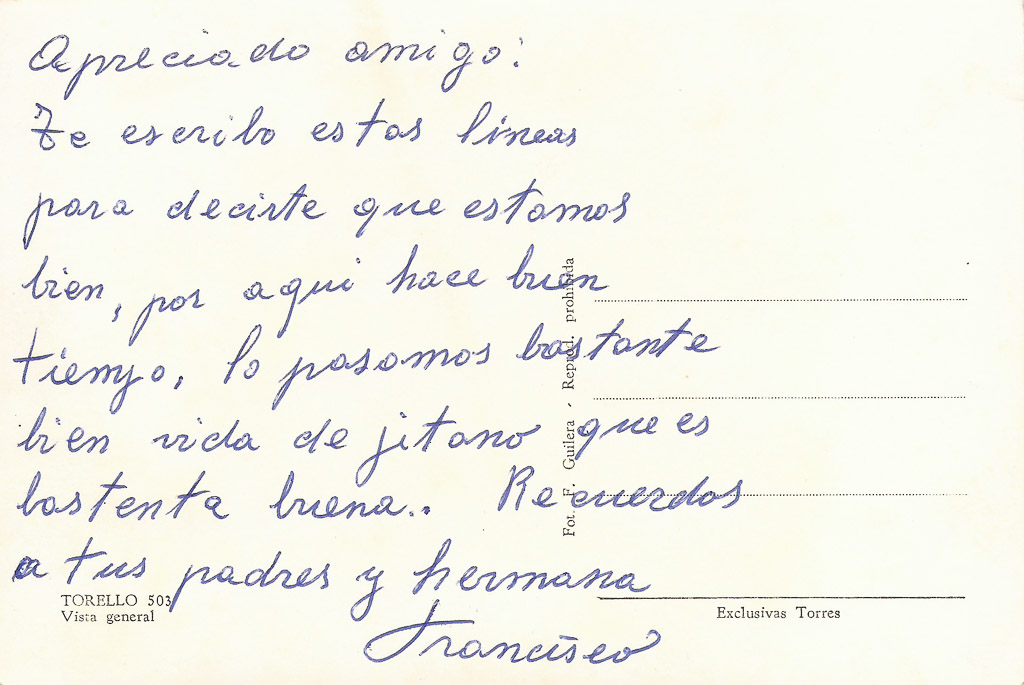 Apreciado amigo:
Te escribo estas líneas
para decirte que estamos
bien, por aqui hace buen
tiempo, lo pasamos bastante
bien vida de jitano que es
bastenta buena.. Recuerdos
a tus padres y hermana
Francisco
TORELLO 503
Vista general
Fot. F. Guilera - Reprod. prohibida
Exclusivas Torres